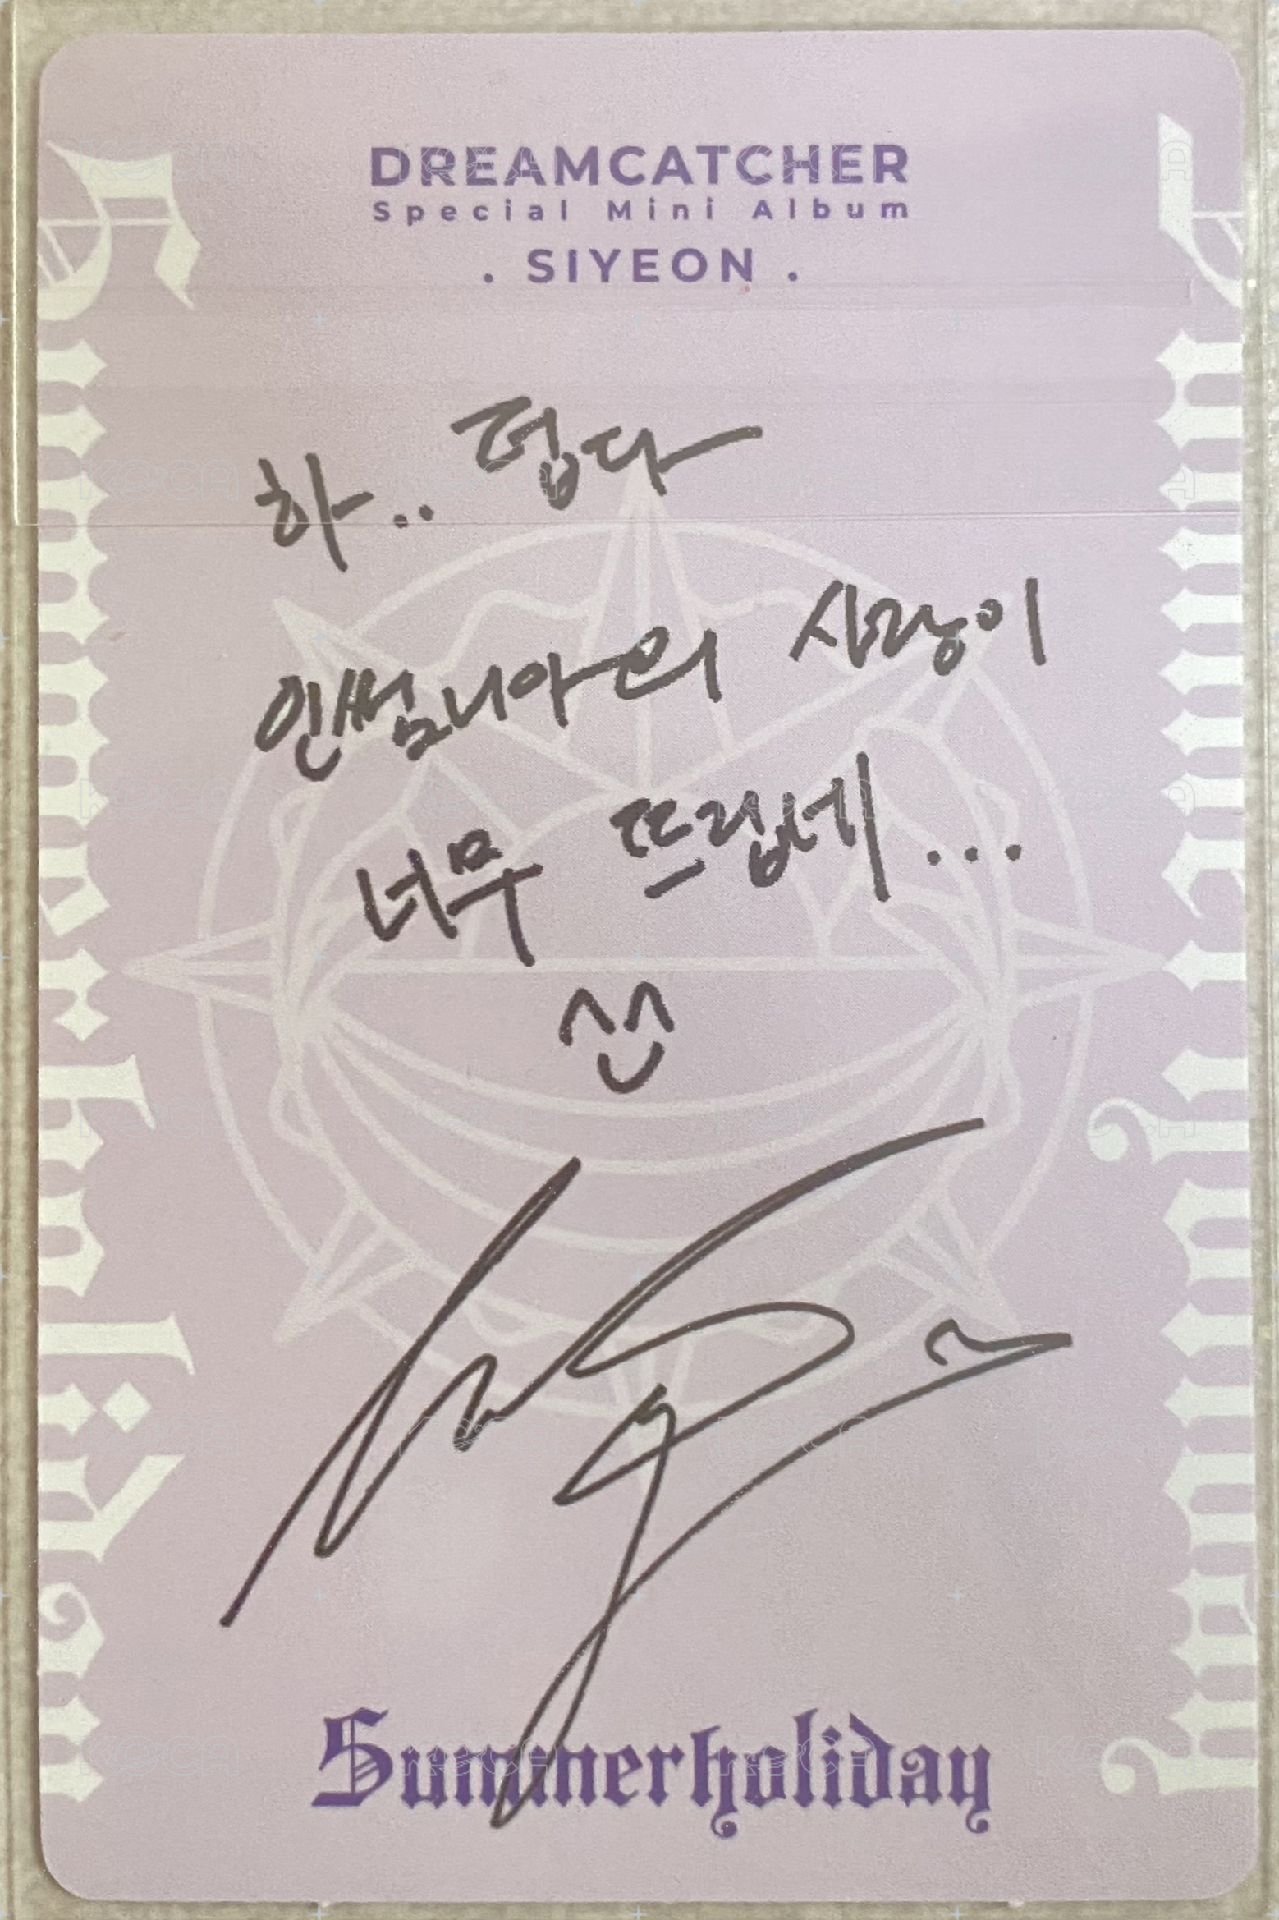 DREAMCATCHER
Special Mini Album
. SIYEON .
하.. 덥다
인썸니아의 사랑이
너무 뜨겁네...
Summerholiday
Summerholiday
Summerholiday